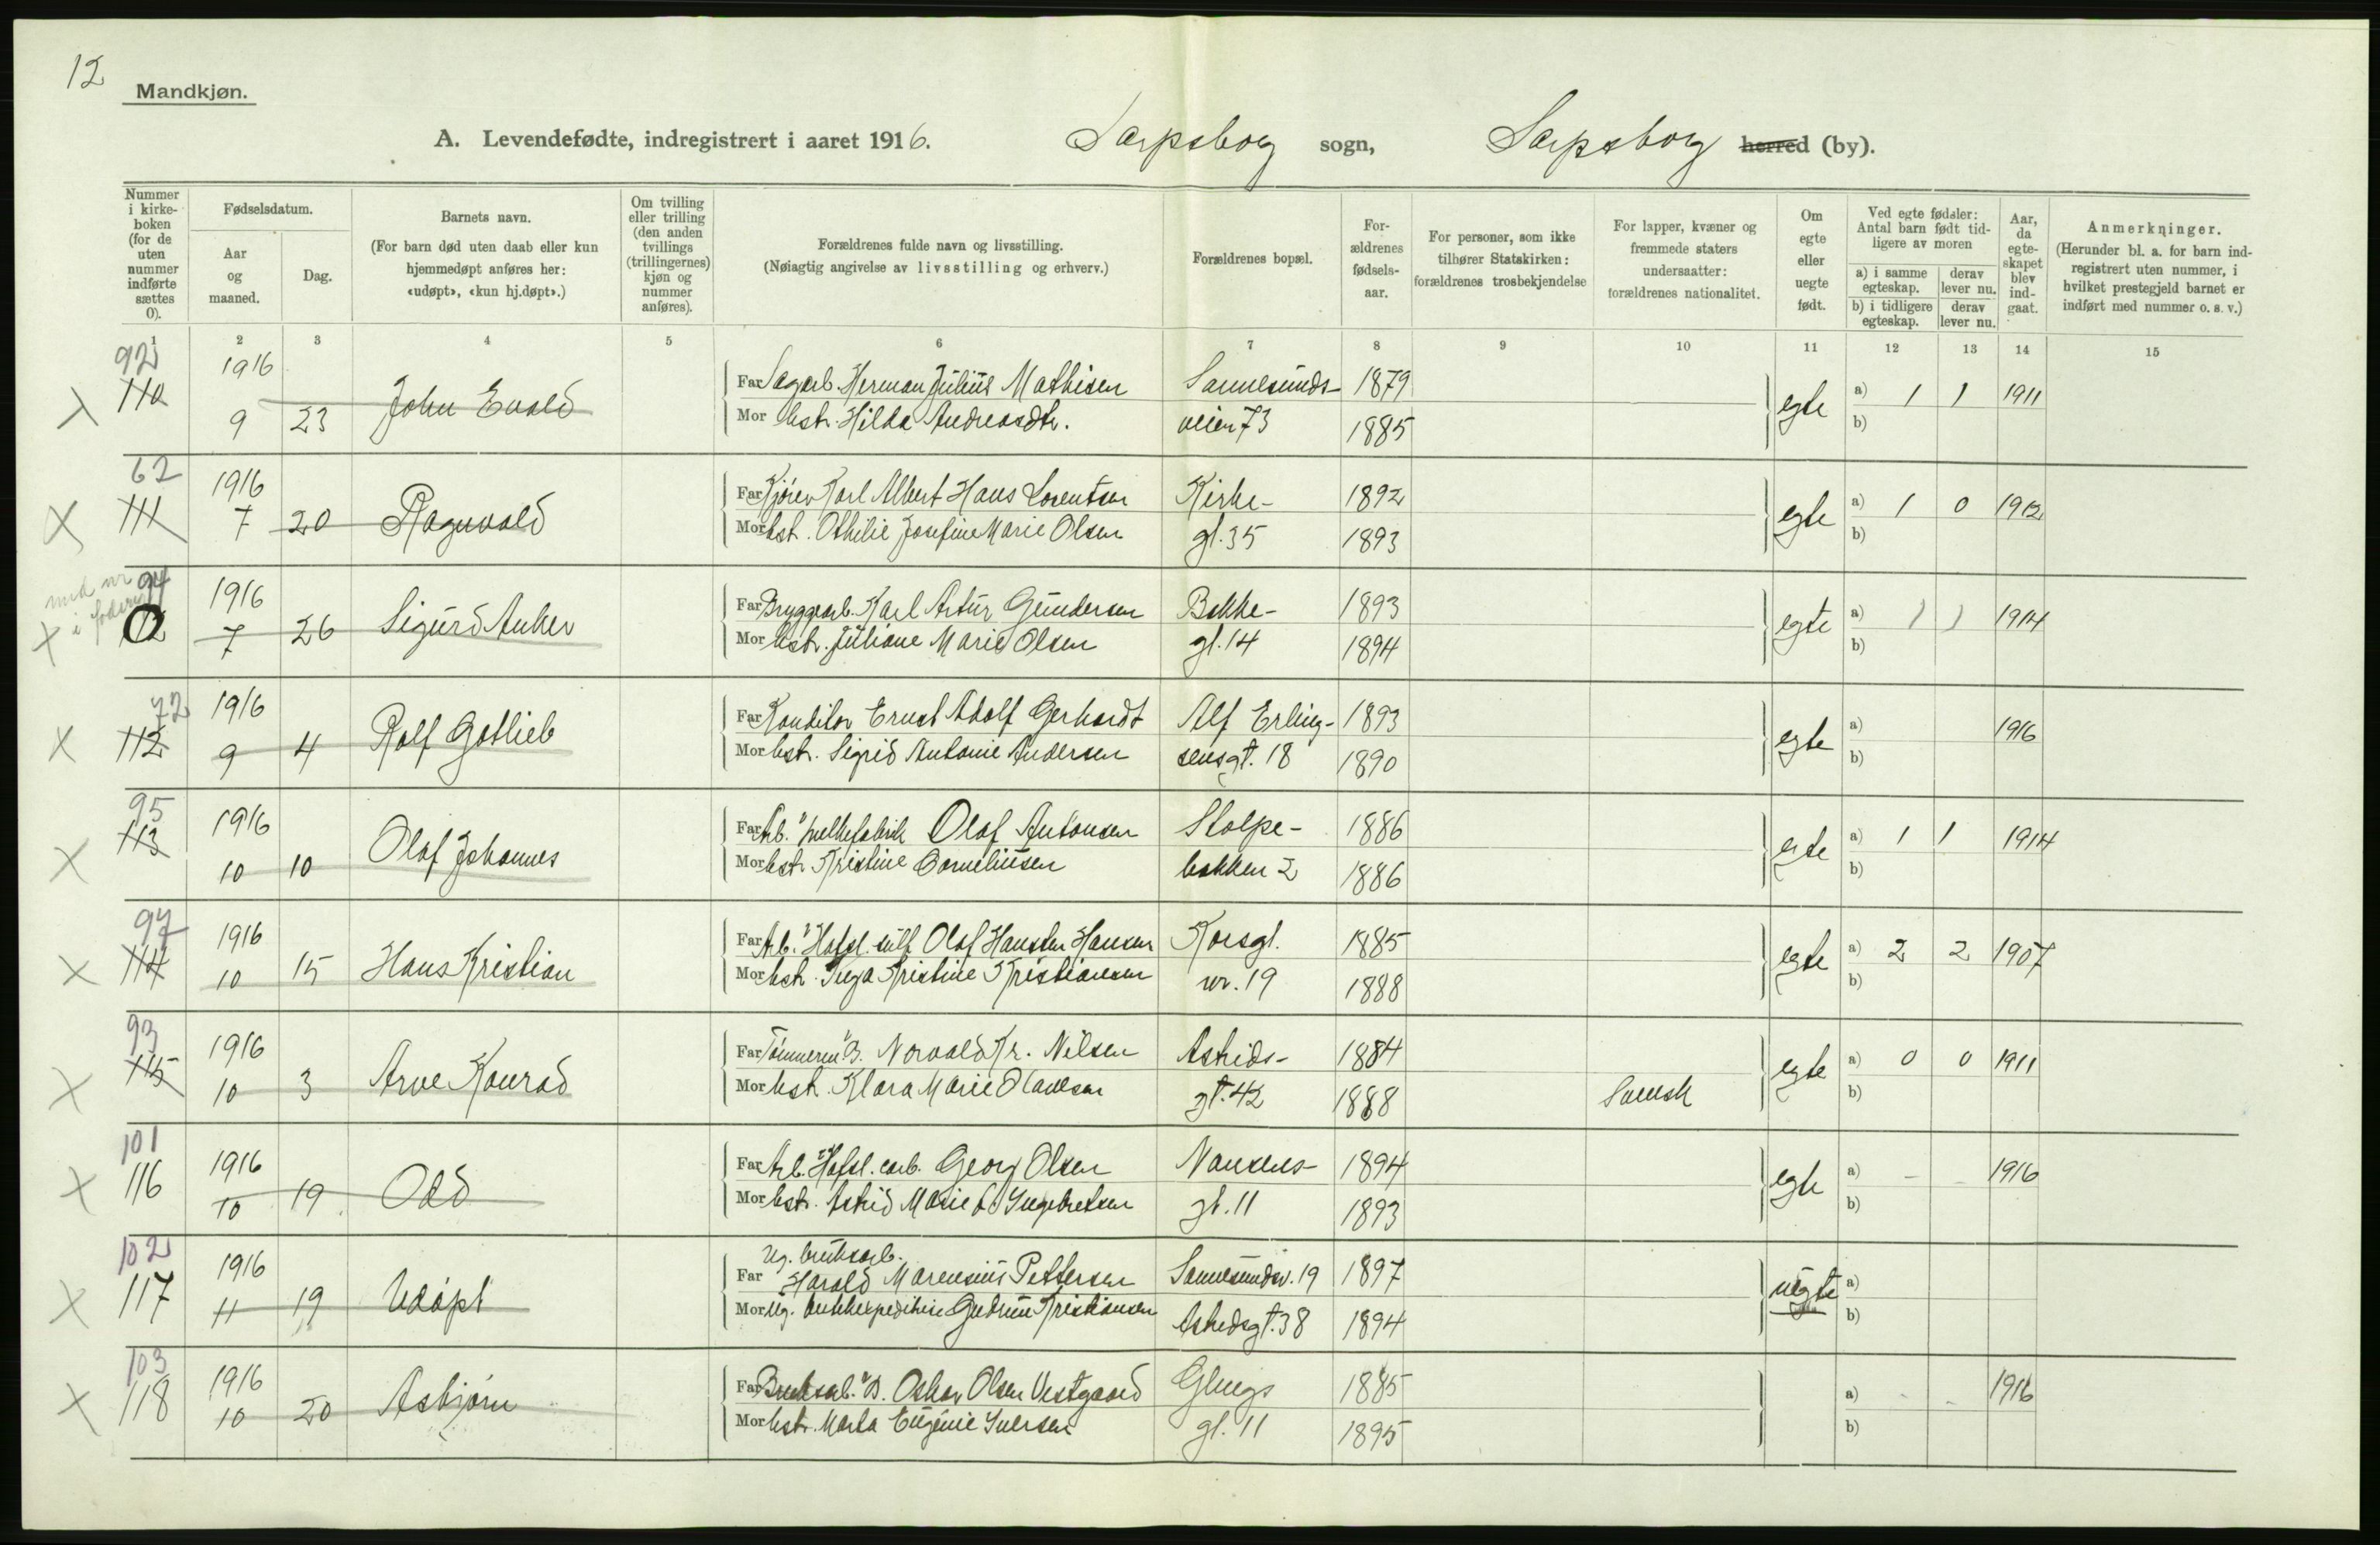 12
Mandkjøn.
A. Levendefødte, indregistrert i aaret 1916. Sarpsborg sogn, Sarpsborg herred (by).
Nummer i kirke-boken (for de uten nummer indførte sættes 0).
Fødselsdatum.
Aar og maaned.
Dag.
Barnets navn.
(For barn død uten daab eller kun hjemmedøpt anføres her: «udøpt», «kun hj.døpt».)
Om tvilling eller trilling (den anden tvillings (trillingernes) kjøn og nummer anføres).
Forældrenes fulde navn og livsstilling.
(Nøiagtig angivelse av livsstilling og erhverv.)
Forældrenes bopæl.
For-ældrenes fødsels-aar.
For personer, som ikke tilhører Statskirken: forældrenes trosbekjendelse
For lapper, kvæner og fremmede staters undersaatter: forældrenes nationalitet.
Om egte eller uegte født.
Ved egte fødsler: Antal barn født tid-ligere av moren
a) i samme egteskap.
derav lever nu.
b) i tidligere egteskap.
derav lever nu.
Aar, da egte-skapet blev ind-gaat.
Anmerkninger.
(Herunder bl. a. for barn ind-registrert uten nummer, i hvilket prestegjeld barnet er indført med nummer o. s. v.)
1 2 3 4 5 6 7 8 9 10 11 12 13 14 15
92 1916 Far Sagarb. Herman Julius Mathisen Sannesunds- 1879 a) 1 1 1911
110 9 23 John Evald Mor hstr. Hilda Andreasdtr. veien 73 1885 egte b)
62 1916 Far Kjører Karl Albert Hans Lorentsen Kirke- 1892 a) 1 0 1912
111 7 20 Ragnvald Mor hst. Othilie Josefine Marie Olsen gt. 35 1893 egte b)
94 1916 Far Bryggearb. Karl Artur Gundersen Bakke- 1893 a) 1 1 1914
0 7 26 Sigurd Anker Mor hstr. Juliane Marie Olsen gt. 14 1894 egte b)
72 1916 Far Konditor Ernst Adolf Gerhardt Alf Erling- 1893 a) 1916
112 9 4 Rolf Gotlieb Mor hstr. Sigrid Antonie Andersen sensgt. 18 1890 egte b)
95 1916 Far Arb. v. melkefabrik Olaf Antonsen Stolpe- 1886 a) 1 1 1914
113 10 10 Olaf Johannes Mor hstr. Kristine Corneliusen bakken 2 1886 egte b)
97 1916 Far Arb. v. Hafsl. sulf. Olaf Hansten Hansen Korsgt. 1885 a) 2 2 1907
114 10 15 Hans Kristian Mor hstr. Inga Kristine Kristiansen nr. 19 1888 egte b)
93 1916 Far Tømmerm. v. B. Norvald Kr. Nilsen Astrids- 1884 a) 0 0 1911
115 10 3 Arve Konrad Mor hstr. Klara Marie Olausen gt. 42 1888 Svensk egte b)
101 1916 Far Arb. v. Hafsl. carb. Georg Olsen Nansens- 1894 a) - - 1916
116 10 19 Odd Mor hstr. Astrid Marie Ingebretsen gt. 11 1893 egte b)
102 1916 Ug. bruksarb.
Far Harald Marensius Pettersen Sannesundsv. 19 1897 a)
117 11 19 Udøpt Mor Ug. butikkexpeditrise Gudrun Kristiansen Astridsgt. 38 1894 uegte b)
103 1916 Far Bruksarb. v. B. Oskar Olsen Vestgaard Glengs 1885 a) - - 1916
118 10 20 Asbjørn Mor hstr. Marta Eugenie Iversen gt. 11 1895 b)